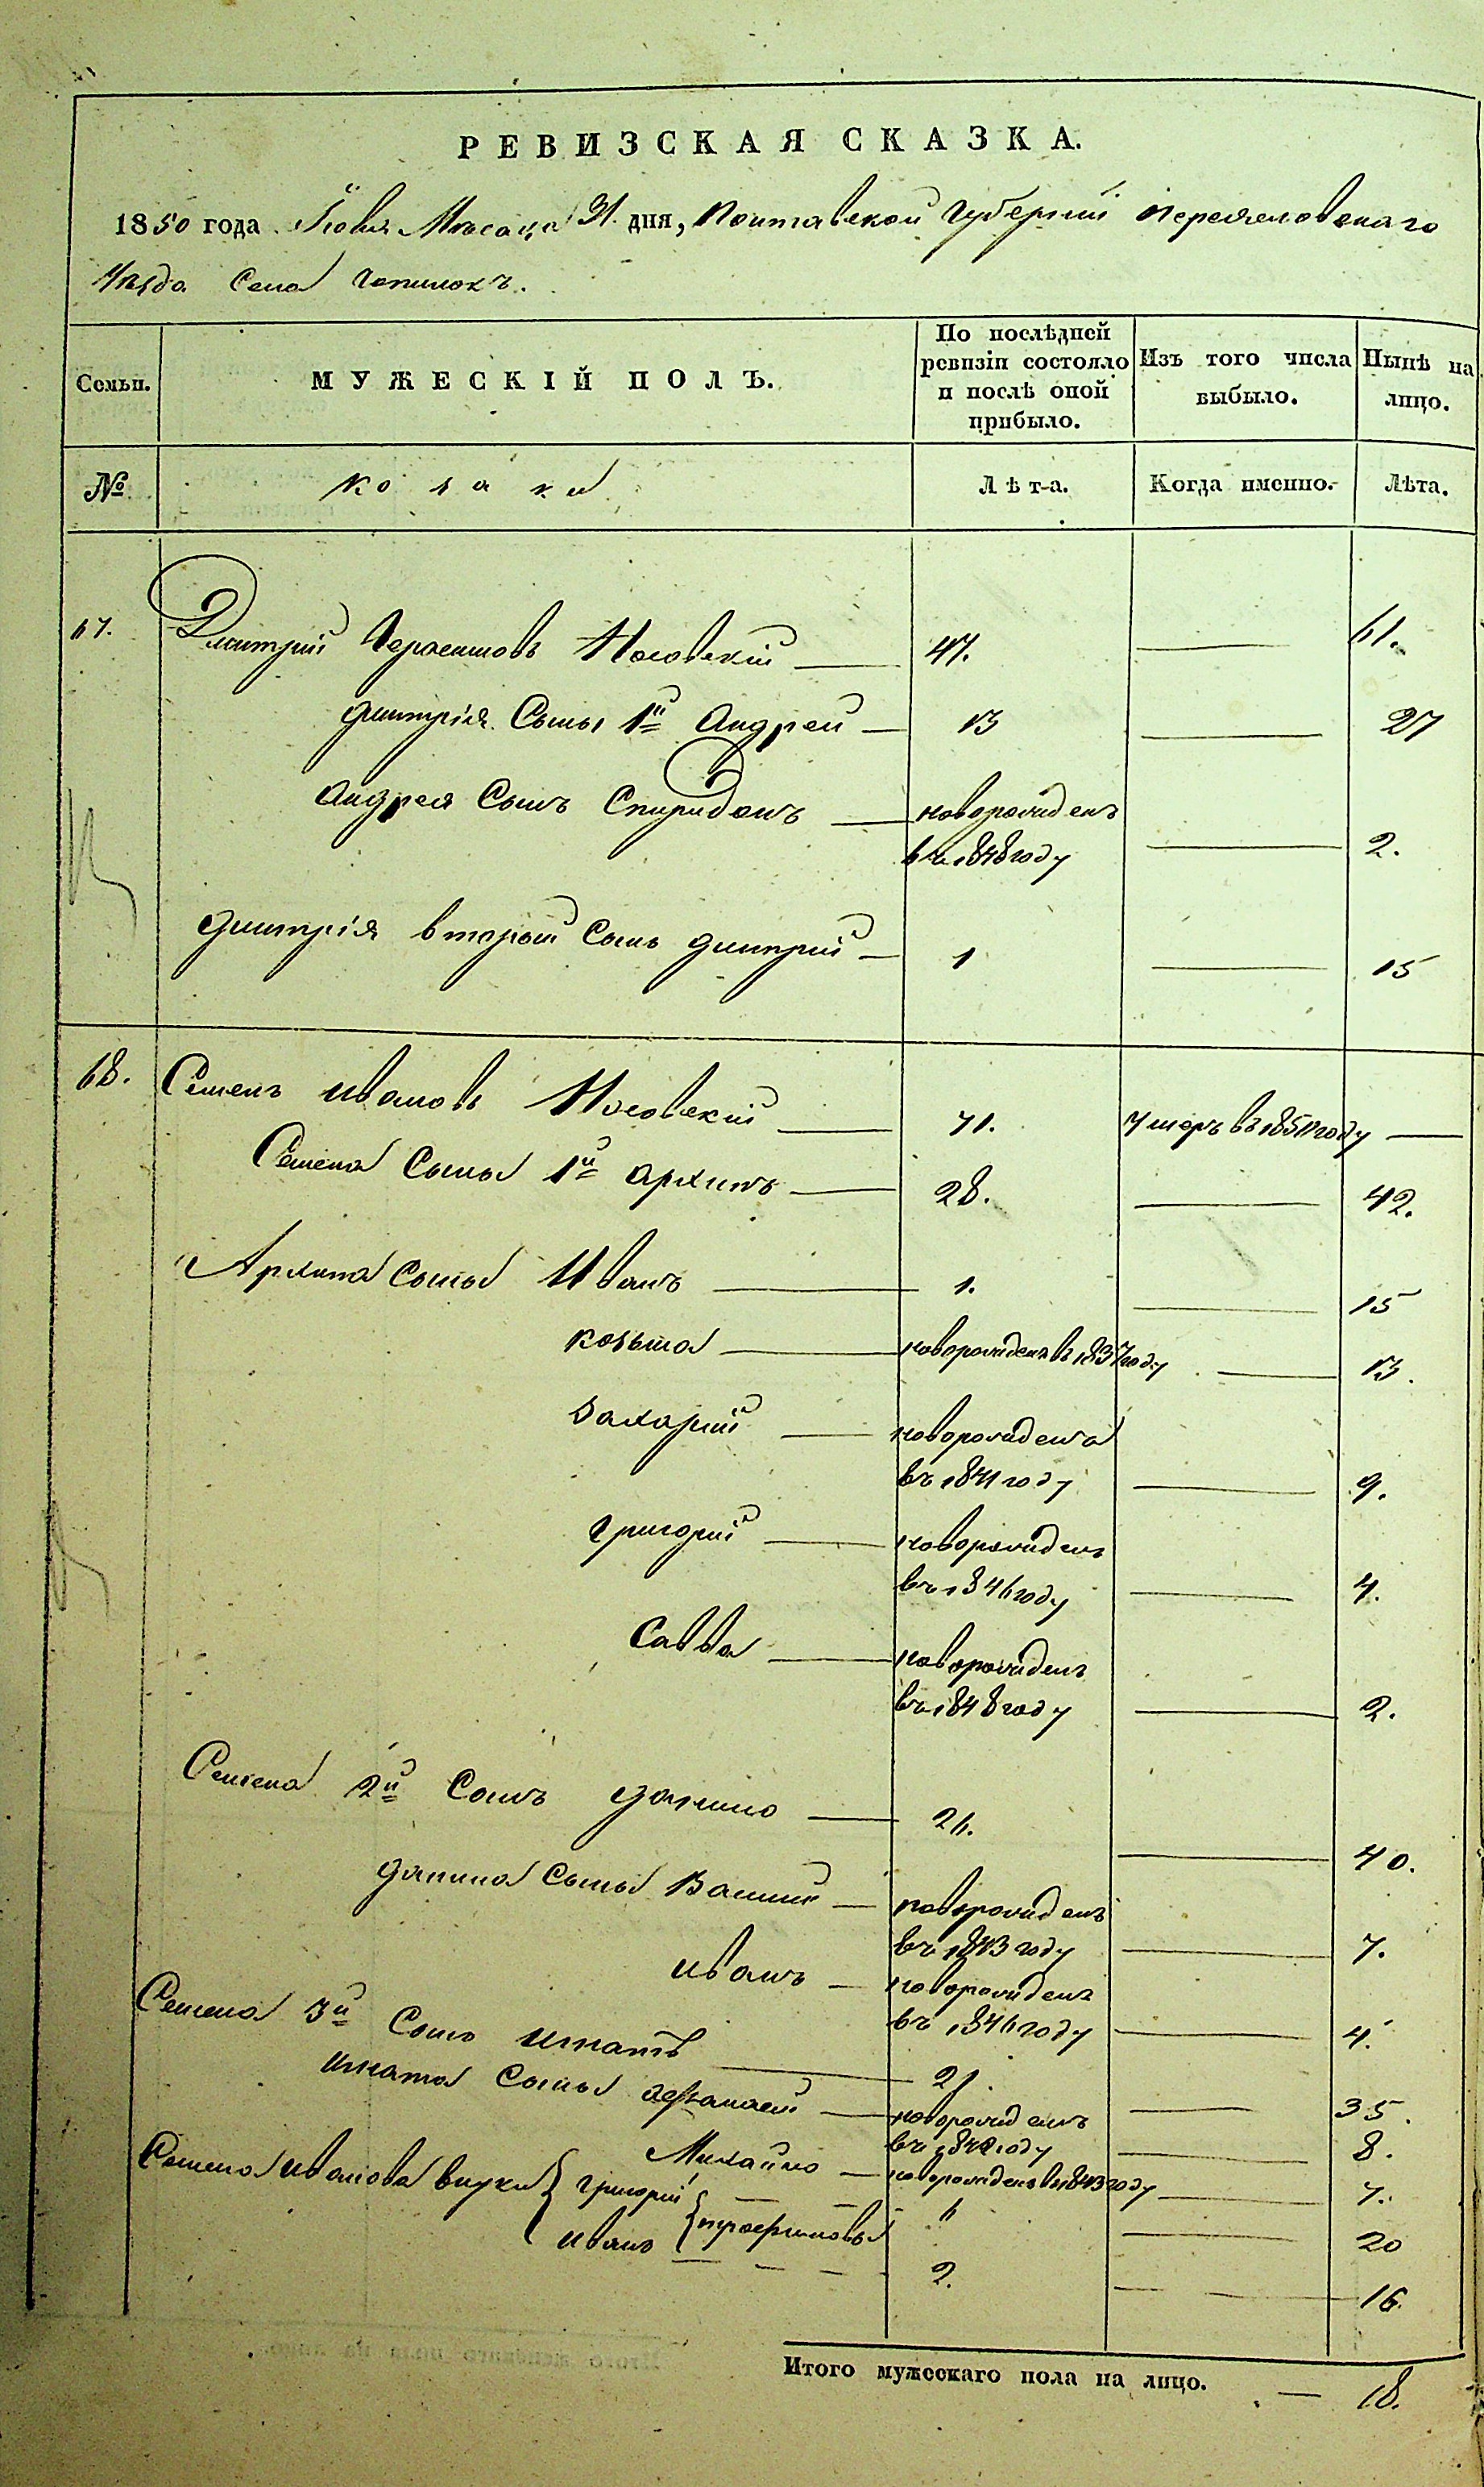 РЕВИЗСКАЯ СКАЗКА.
1850 года Месяца 31. дня, Полтавской Губерніи Переяловскаго
Уезда Села
Семьи. МУЖЕСКІЙ ПОЛЪ. По послѣдней ревизіи состояло и послѣ оной прибыло. Изъ того числа выбыло. Нынѣ на лицо.
№ козаки Лѣта. Когда именно. Лѣта.
67. Дмитрій Носовскій 47. 61.
Дмитрія Сыны 1й Андрей 13 27
Андрея Сынъ Спиридонъ новорожденъ
въ 1848 году 2.
Дмитрія второй Сынъ Дмитрій 1 15
68. Семенъ Ивановъ Носовскій 71. Умеръ въ 1850 году
Семена Сыны 1й Архипъ 28. 42.
Архипа Сыны Иванъ 1. 15
Козьма новорожденъ въ 1837 году 13.
Захарій новорожденъ
въ 1841 году 9.
Григорій новорожденъ
въ 1846 году 4.
Савва новорожденъ
въ 1848 году 2.
Семена 2й Сынъ Данило 26. 40.
Данила Сыны Василій новорожденъ
въ 1843 году 7.
Иванъ новорожденъ
въ 1846 году 4.
Семена 3й Сынъ Игнатъ 21. 35.
Игната Сыны Афанасій новорожденъ
въ 1842 году 8.
Михайло новорожденъ въ 1843 году 7.
Семена Иванова внуки Григорій Трофимовы 6 20
Иванъ 2. 16.
Итого мужескаго пола на лицо. 18.